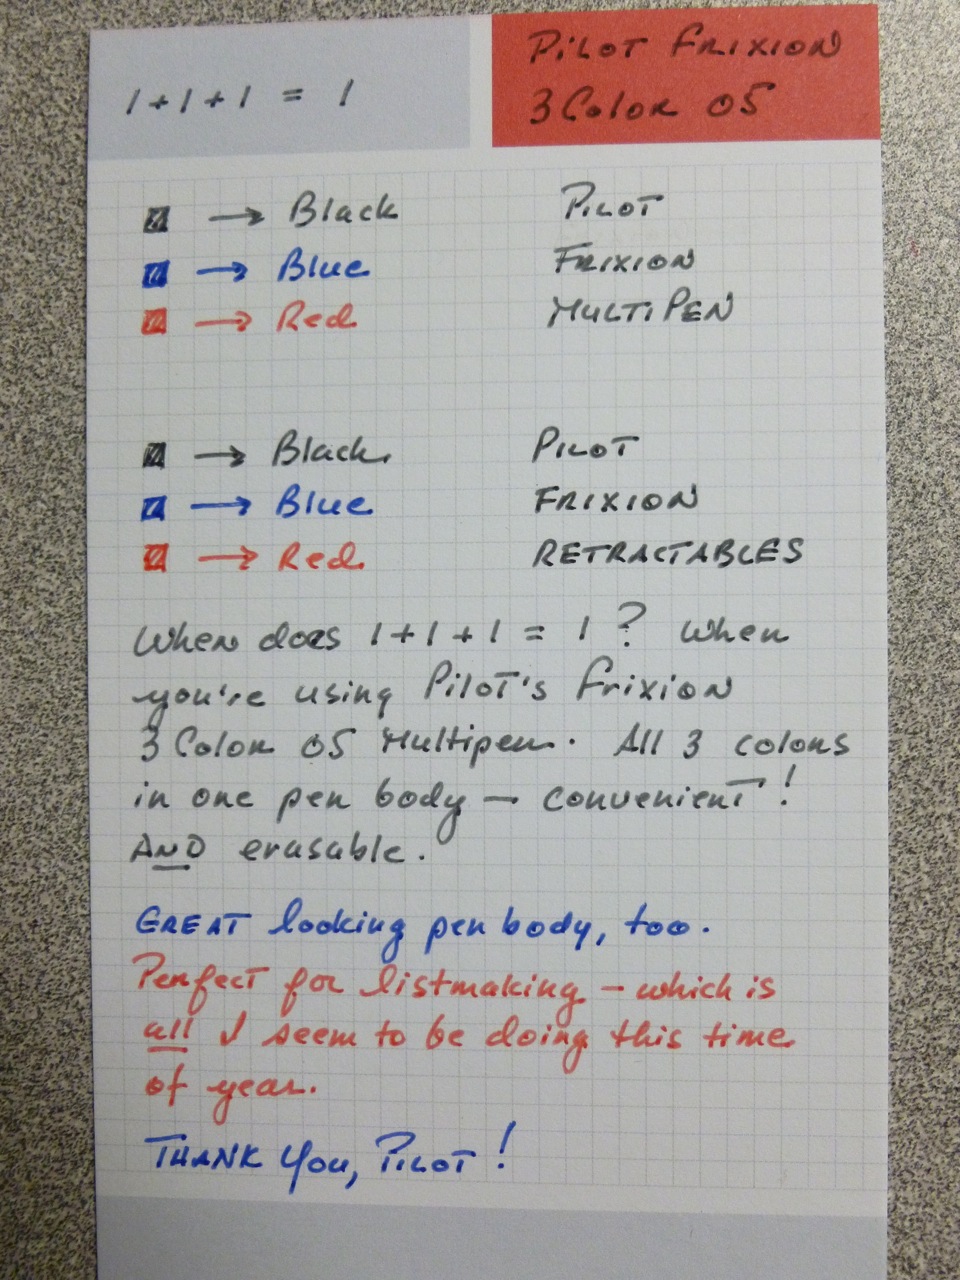 1+1+1 = 1
PiLOT FRIXION
3 Color 05
→ Black PILOT
→ Blue FRIXION
→ Red MULTiPEN
→ Black PILOT
→ Blue FRIXION
→ Red RETRACTABLES
When does 1+1+1 = 1? When
you're using Pilot's Frixion
3 Color 05 Multipen. All 3 colors
in one pen body — convenient!
AND erasable.
GREAT looking pen body, too.
Perfect for listmaking – which is
all I seem to be doing this time
of year.
THANK You, PILOT!